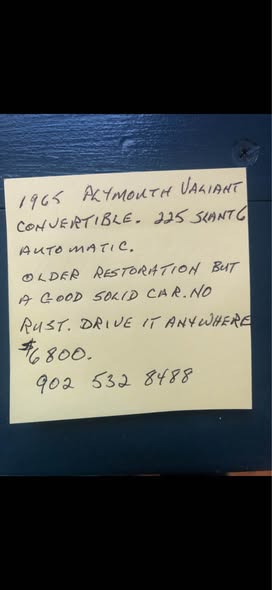 1965 PLYMOUTH VALIANT
CONVERTIBLE. 225 SLANT 6
AUTOMATIC.
OLDER RESTORATION BUT
A GOOD SOLID CAR. NO
RUST. DRIVE IT ANYWHERE
$6800.
902 532 8488